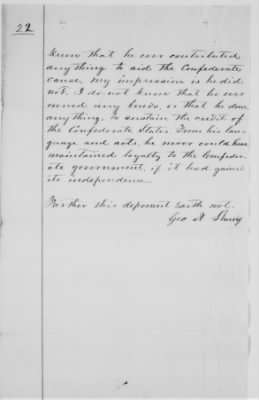 22
know that he ever contributed
anything to aid the Confederate
cause, my impression is he did
not. I do not know that he ever
owned any bonds, or that he done
anything to sustain the credit of
the Confederate States. From his lan-
guage and acts, he never could have
maintained loyalty to the Confeder-
ate government, if it had gained
its independence.
Further this deponent saith not.
Geo A